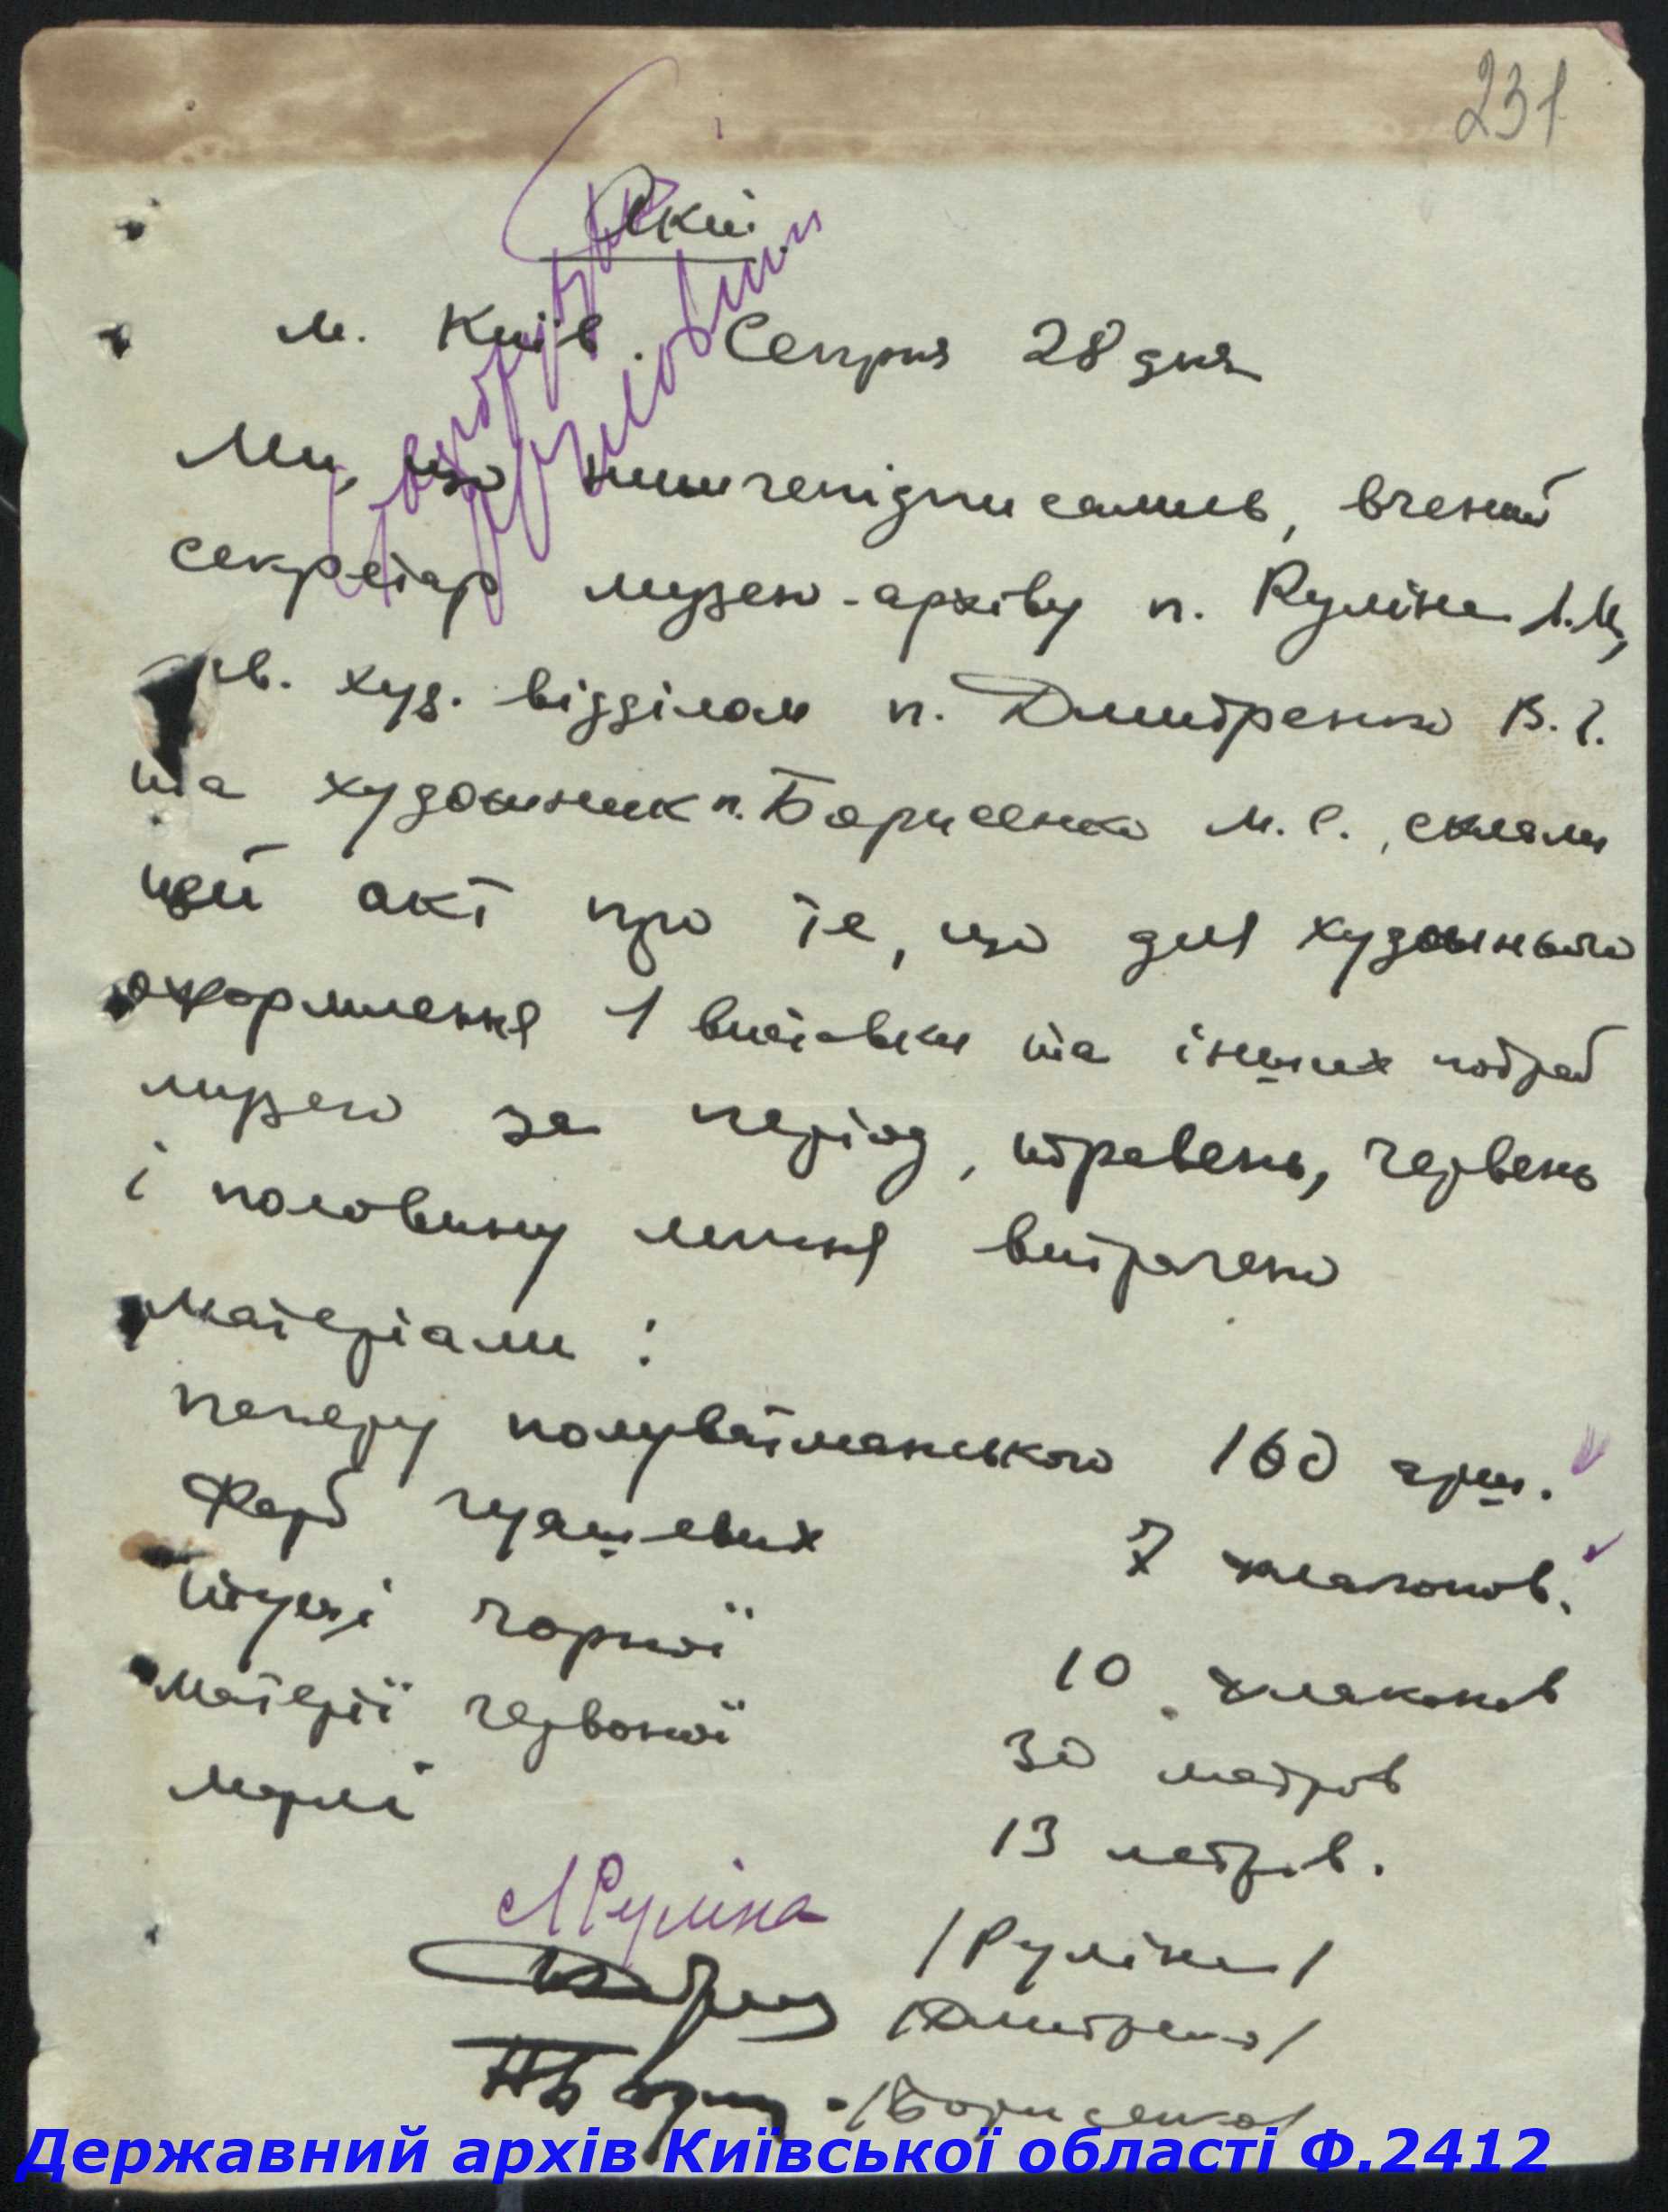 231
Акт
м. Київ. Серпня 28 дня
Ми, що нижчепідписались, вчений
секретар музею-архіву п. Руліна Л.М,
зав. худ. відділом п. Дмитренко В.І.
та художник п. Борисенко М.С., склали
цей акт про те, що для художнього
оформлення 1 виставки та інших потреб
музею за період, травень, червень
і половину липня витрачено
матеріали:
паперу полуватманського 160 арш.
Фарб гуашевих 7 флаконов.
Тушi чорної 10 флаконов
матерії червоної 30 метров
марлі 13 метрів.
ЛРуліна /Руліна/
/Дмитренко/
/Борисенко/
Державний архів Київської області Ф.2412